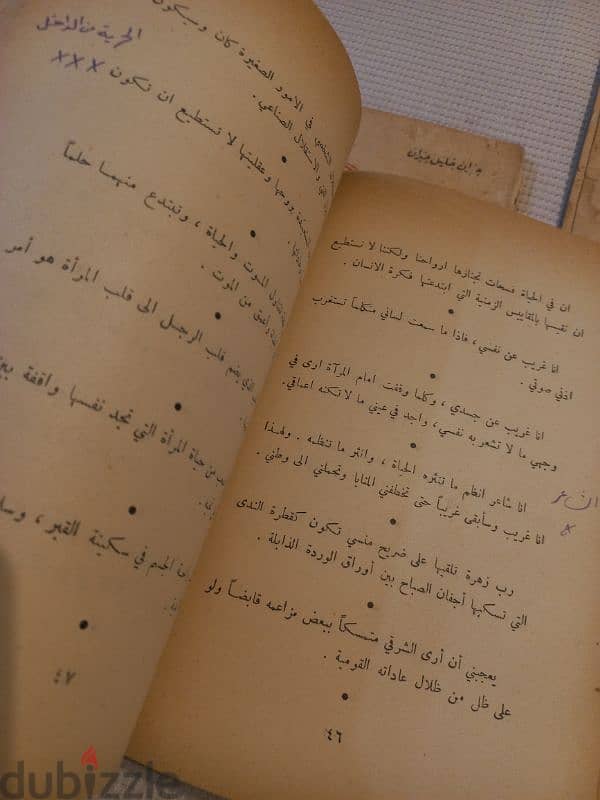 ان في الحياة فسحات تجتازها ارواحنا ولكننا لا نستطيع
ان نقيسها بالمقاييس الزمنية التي ابتدعتها فكرة الانسان .
انا غريب عن نفسي ، فاذا ما سمعت لساني متكلماً تستغرب
اذني صوتي .
انا غريب عن جسدي ، وكلما وقفت امام المرآة ارى في
وجهي ما لا تشعر به نفسي ، واجد في عيني ما لا تكنه اعماقي .
انا شاعر انظم ما تنثره الحياة ، وانثر ما تنظمه . ولهذا
انا غريب وسأبقى غريباً حتى تخطفني المنايا وتحملني الى وطني .
x
رب زهرة تلقيها على ضريح منسي تكون كقطرة الندى
التي تسكبها أجفان الصباح بين أوراق الوردة الذابلة .
يعجبني أن أرى الشرقي متمسكاً ببعض مزاعمه قابضاً ولو
على ظل من ظلال عاداته القومية .
٤٦
الحرية من الداخل
في الامور الصغيرة كان وسيكون
والاستقلال الصناعي .
روحها وعقليتها لا تستطيع ان تكون xxx
الموت والحياة ، وتبتدع منهما حلماً
من الموت .
يضم قلب الرجل الى قلب المرأة هو أمر
من حياة المرأة التي تجد نفسها واقفة بين
الجسم في سكينة القبر ، وسا
٤٧
خليل جبران
dubizzle